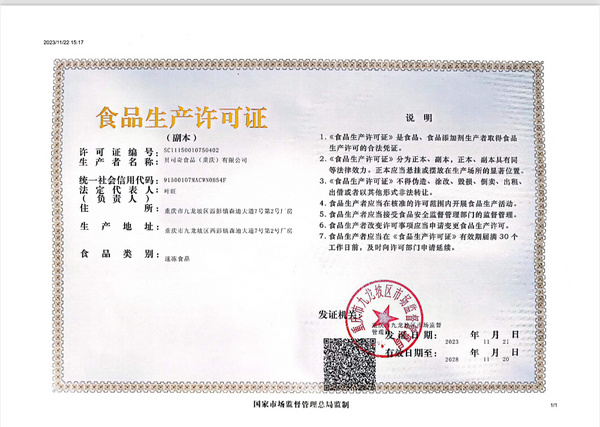 2023/11/22 15:17
食品生产许可证
（副本）
许可证编号：SC11150010750402
生产者名称：贝司奇食品（重庆）有限公司
统一社会信用代码：91500107MACW80854F
法定代表人：叶旺
（负责人）
住所：重庆市九龙坡区西彭镇森迪大道7号第2号厂房
生产地址：重庆市九龙坡区西彭镇森迪大道7号第2号厂房
食品类别：速冻食品
说明
1.《食品生产许可证》是食品、食品添加剂生产者取得食品
生产许可的合法凭证。
2.《食品生产许可证》分为正本、副本，正本、副本具有同
等法律效力。正本应当悬挂或摆放在生产场所的显著位置。
3.《食品生产许可证》不得伪造、涂改、毁损、倒卖、出租、
出借或者以其他形式非法转让。
4.食品生产者应当在核准的许可范围内开展食品生产活动。
5.食品生产者应当接受食品安全监督管理部门的监督管理。
6.食品生产者改变许可事项应当申请变更食品生产许可。
7.食品生产者应当在《食品生产许可证》有效期届满30个
工作日前，及时向许可部门申请延续。
发证机关：
重庆市九龙坡区市场监督
管理局
发证日期：2023年11月21日
有效日期至：2028年11月20日
国家市场监督管理总局监制
1/1